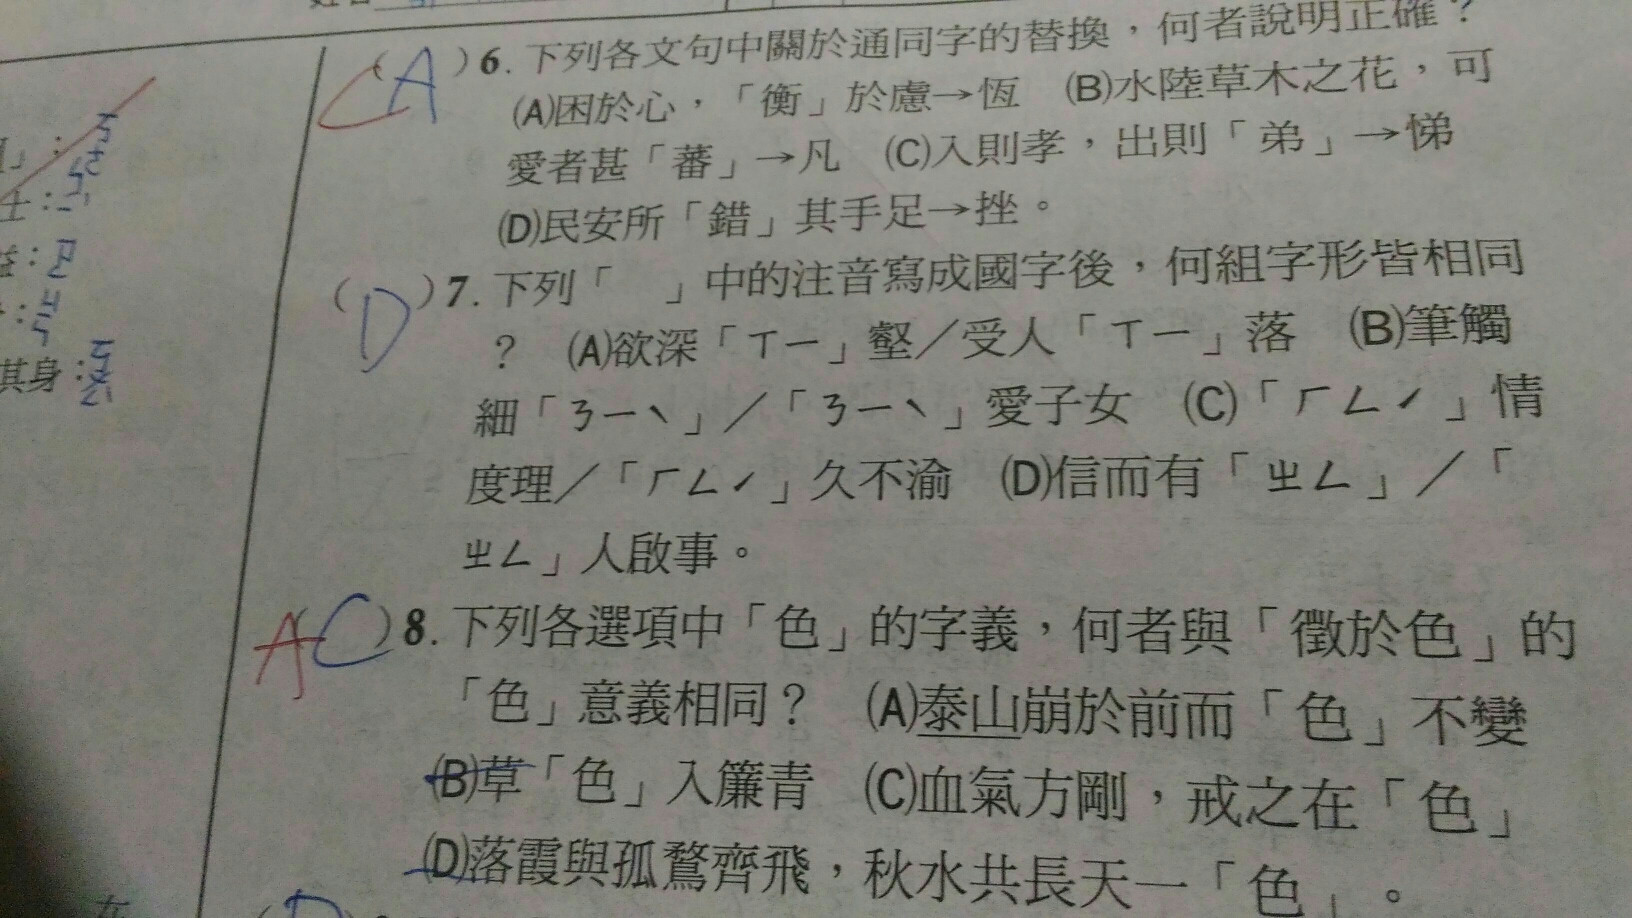 (A)6. 下列各文句中關於通同字的替換，何者說明正確？
C
(A)困於心，「衡」於慮→恆　(B)水陸草木之花，可
愛者甚「蕃」→凡　(C)入則孝，出則「弟」→悌
(D)民安所「錯」其手足→挫。
(D)7. 下列「　」中的注音寫成國字後，何組字形皆相同
？　(A)欲深「ㄒㄧ」壑／受人「ㄒㄧ」落　(B)筆觸
細「ㄋㄧˋ」／「ㄋㄧˋ」愛子女　(C)「ㄏㄥˊ」情
度理／「ㄏㄥˊ」久不渝　(D)信而有「ㄓㄥ」／「
ㄓㄥ」人啟事。
A(C)8. 下列各選項中「色」的字義，何者與「徵於色」的
「色」意義相同？　(A)泰山崩於前而「色」不變
(B)草「色」入簾青　(C)血氣方剛，戒之在「色」
(D)落霞與孤鶩齊飛，秋水共長天一「色」。
其身：